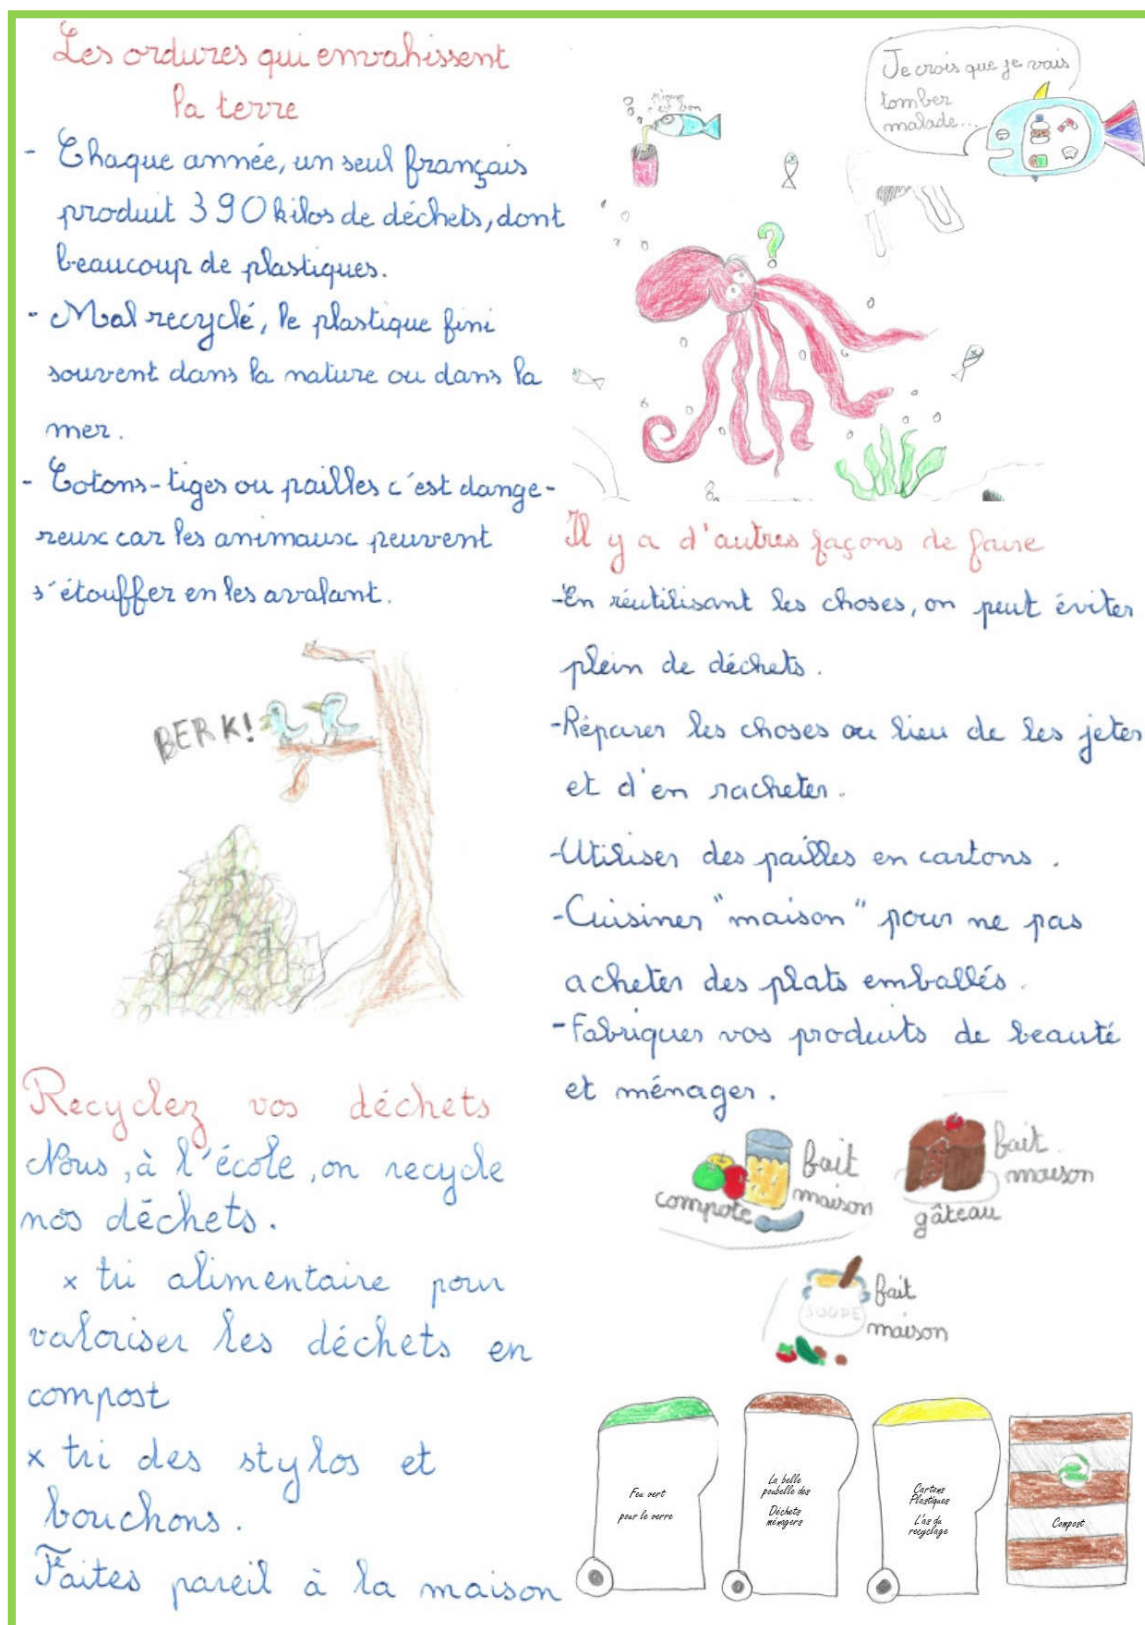 Les ordures qui envahissent
la terre
- Chaque année, un seul français
produit 390 kilos de déchets, dont
beaucoup de plastiques.
- Mal recyclé, le plastique fini
souvent dans la nature ou dans la
mer.
- Cotons-tiges ou pailles c'est dange-
reux car les animaux peuvent
s'étouffer en les avalant.
BERK!
Recyclez vos déchets
Nous, à l'école, on recycle
nos déchets.
x tri alimentaire pour
valoriser les déchets en
compost
x tri des stylos et
bouchons.
Faites pareil à la maison
bon
Je crois que je vais
tomber
malade...
?
Il y a d'autres façons de faire
-En réutilisant les choses, on peut éviter
plein de déchets.
-Réparer les choses au lieu de les jeter
et d'en racheter.
-Utiliser des pailles en cartons.
-Cuisiner "maison" pour ne pas
acheter des plats emballés.
-Fabriquer vos produits de beauté
et ménager.
compote
fait
maison
gâteau
fait
maison
SOUPE
fait
maison
Feu vert
pour le verre
La belle
poubelle des
Déchets
ménagers
Cartons
Plastiques
L'as du
recyclage
Compost